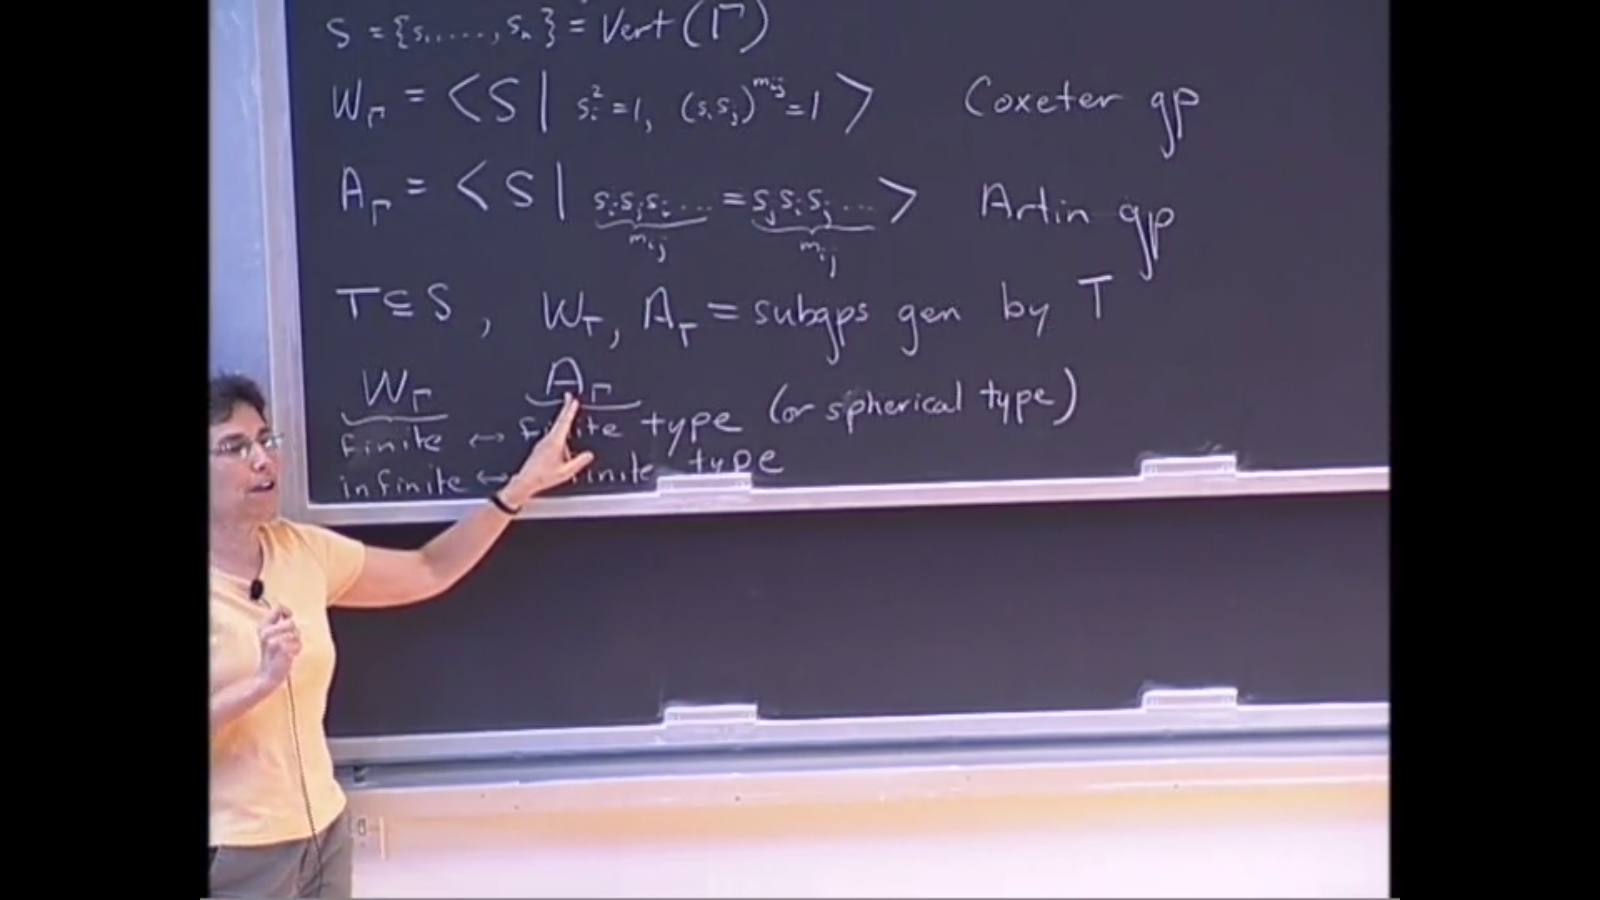 S = {s₁, ...., sₙ} = Vert(Γ)
W_Γ = < S | sᵢ² = 1, (sᵢsⱼ)^{mᵢⱼ} = 1 > Coxeter gp
A_Γ = < S | sᵢsⱼsᵢ... = sⱼsᵢsⱼ... > Artin gp
mᵢⱼ mᵢⱼ
T ⊆ S, W_T, A_T = subgps gen by T
W_Γ A_Γ
finite ↔ finite type (or spherical type)
infinite ↔ type